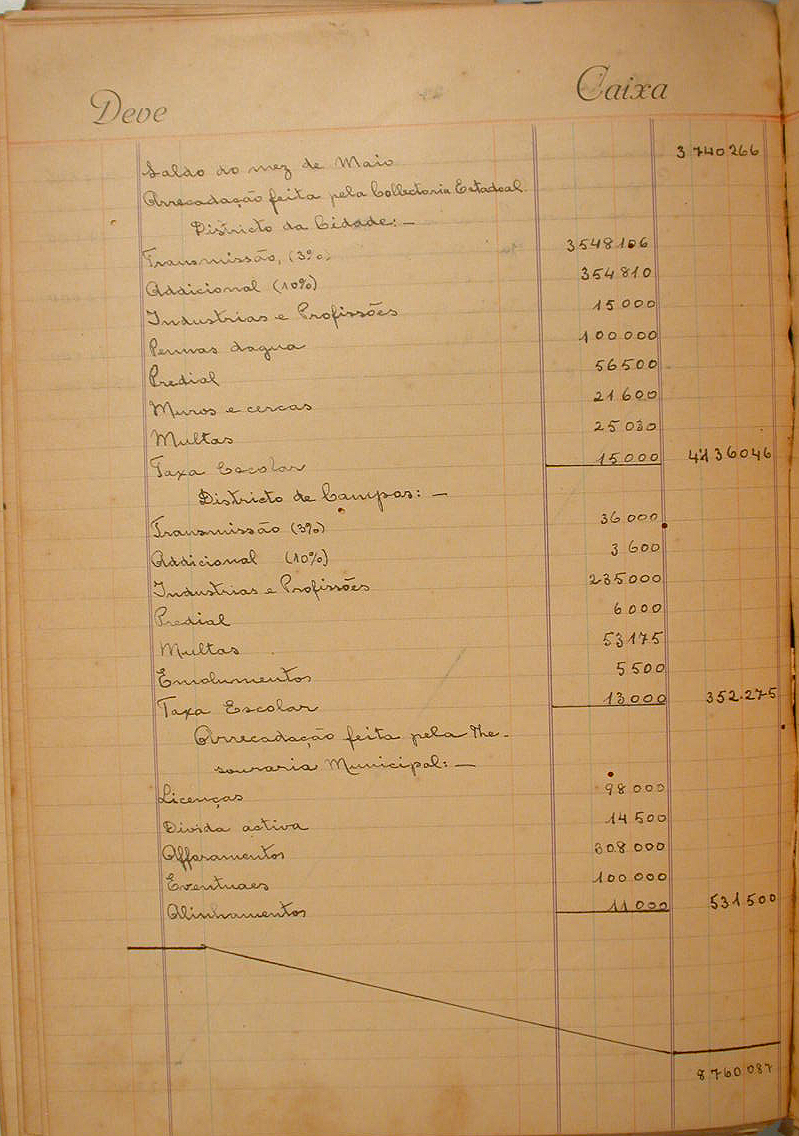 Deve Caixa
Saldo do mez de Maio 3 740 266
Arrecadação feita pela Collectoria Estadoal
Districto da Cidade: —
Transmissão, (3%) 3548106
Addicional (10%) 354 810
Industrias e Profissões 15 000
Pennas dagua 100 000
Predial 56 500
Muros e cercas 21 600
Multas 25 030
Taxa Escolar 15 000 4136046
Districto de Campos: —
Transmissão (3%) 36 000
Addicional (10%) 3 600
Industrias e Profissões 235 000
Predial 6 000
Multas 53 175
Emolumentos 5 500
Taxa Escolar 13 000 352.275
Arrecadação feita pela The-
souraria Municipal: —
Licenças 98 000
Divida activa 14 500
Afforamentos 308 000
Eventuaes 100 000
Alinhamentos 11 000 531 500
8 760 087